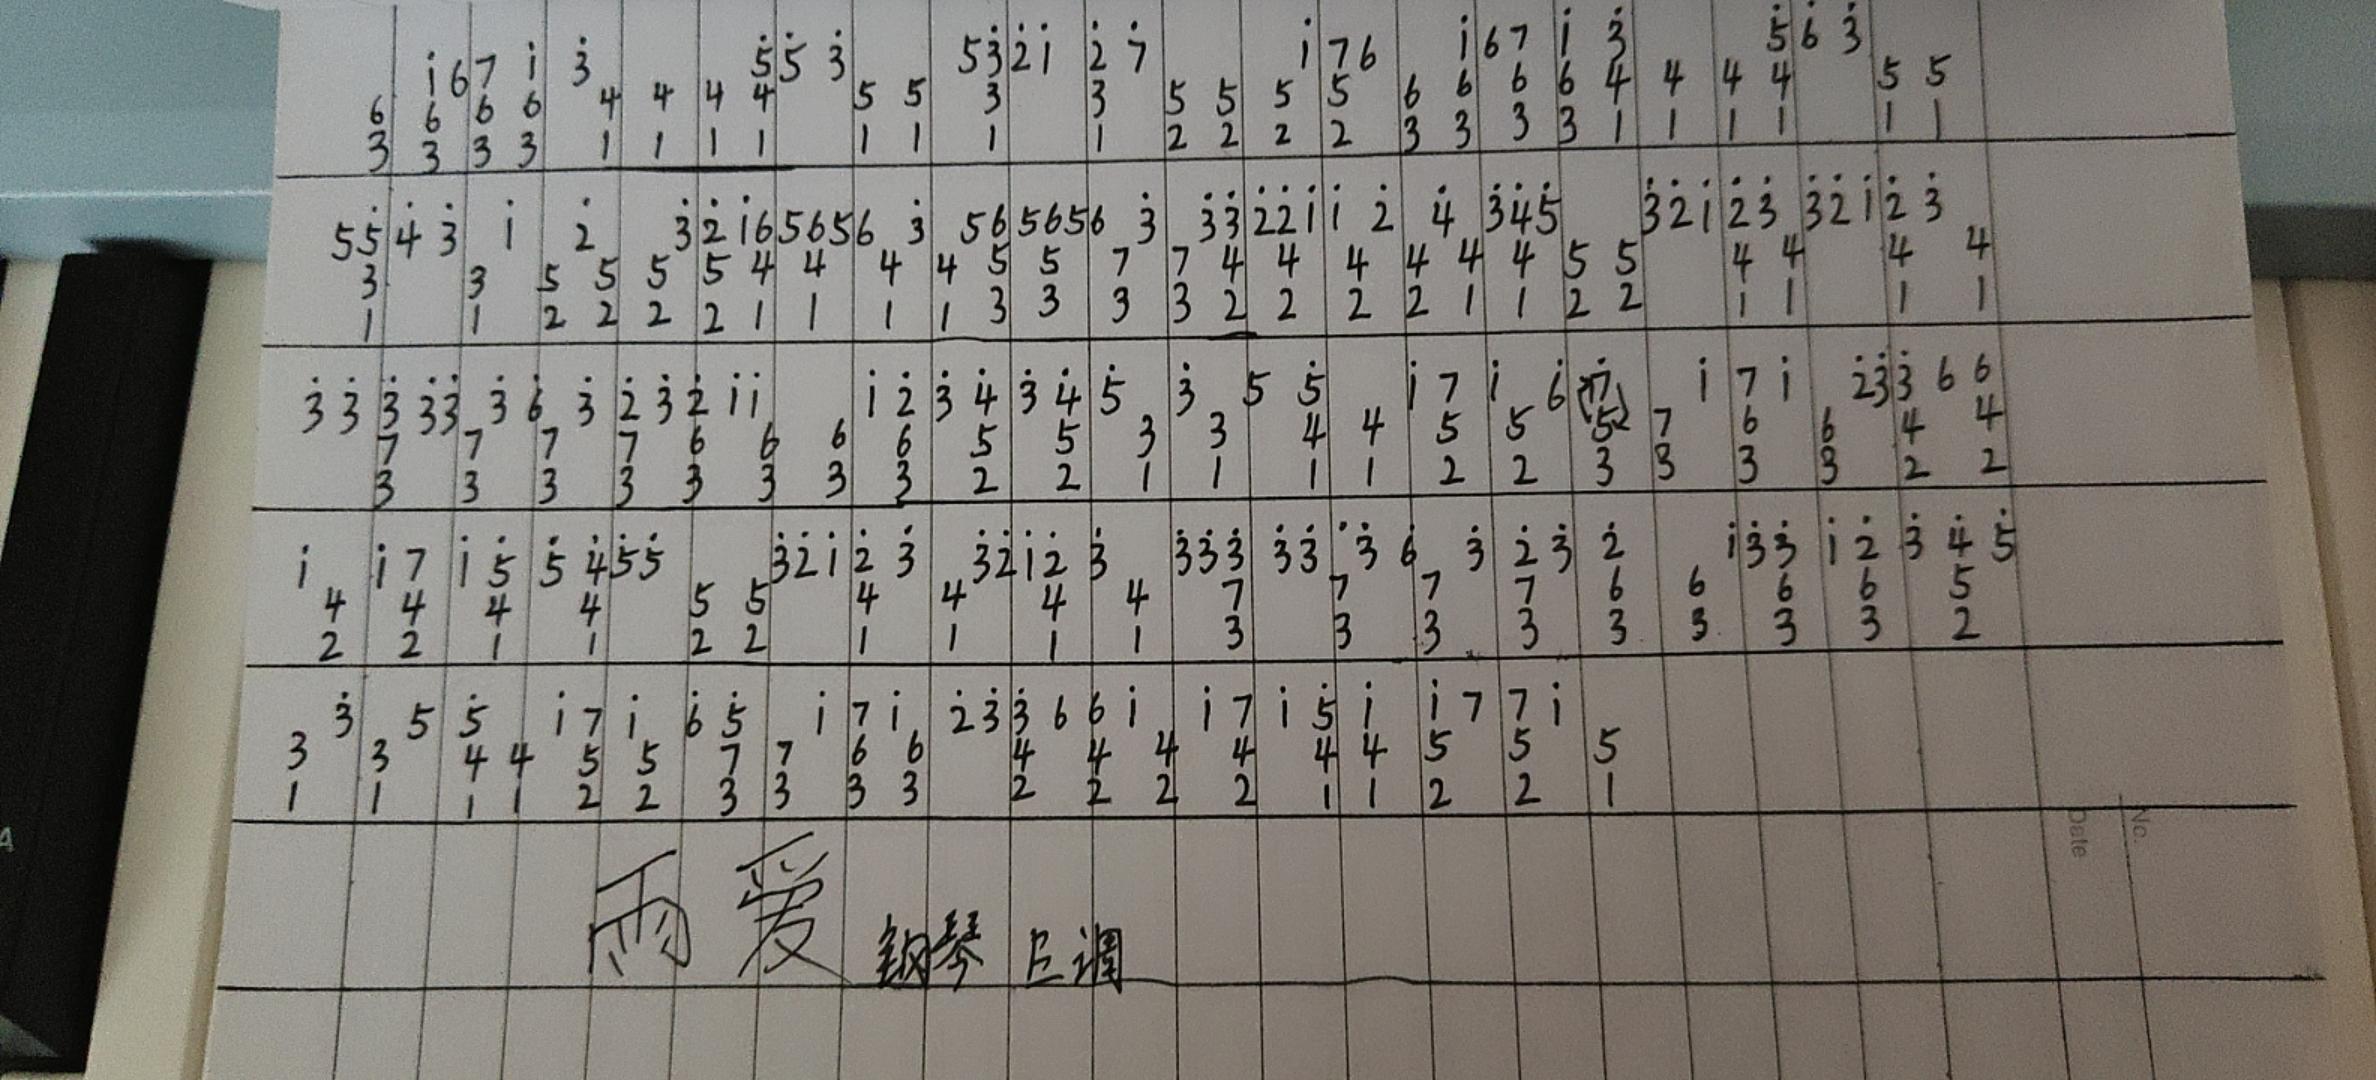 i 6 7 i 3̇ 5̇ 5̇ 3̇ 5 3̇ 2̇ i 2̇ 7̇ i 7 6 i 6 7 i 3̇ 5̇ 6̇ 3̇
6 6 6 6 4 4 4 4 5 5 3 3 5 5 5 5 6 6 6 6 4 4 4 4 5 5
3 3 3 3 1 1 1 1 1 1 1 1 2 2 2 2 3 3 3 3 1 1 1 1 1 1
5 5̇ 4̇ 3̇ i 2̇ 3̇ 2̇ i 6 5 6 5 6 3̇ 5 6 5 6 5 6 3̇ 3̇ 3̇ 2̇ 2̇ i i 2̇ 4̇ 3̇ 4̇ 5̇ 3̇ 2̇ i 2̇ 3̇ 3̇ 2̇ i 2̇ 3̇
3 3 5 5 5 5 4 4 4 4 5 5 7 7 4 4 4 4 4 4 5 5 4 4 4 4
1 1 2 2 2 2 1 1 1 1 3 3 3 3 2 2 2 2 1 1 2 2 1 1 1 1
3̇ 3̇ 3̇ 3̇ 3̇ 3̇ 6̇ 3̇ 2̇ 3̇ 2̇ i i i 2̇ 3̇ 4̇ 3̇ 4̇ 5̇ 3̇ 5 5̇ i 7 i 6̇ 7̇ i 7 i 2̇ 3̇ 3̇ 6 6
7 7 7 7 6 6 6 6 5 5 3 3 4 4 5 5 5 7 6 6 4 4
3 3 3 3 3 3 3 3 2 2 1 1 1 1 2 2 3 3 3 3 2 2
i i 7 i 5̇ 5̇ 4̇ 5̇ 5̇ 3̇ 2̇ i 2̇ 3̇ 3̇ 2̇ i 2̇ 3̇ 3̇ 3̇ 3̇ 3̇ 3̇ 3̇ 6̇ 3̇ 2̇ 3̇ 2̇ i 3̇ 3̇ i 2̇ 3̇ 4̇ 5̇
4 4 4 4 5 5 4 4 4 4 7 7 7 7 6 6 6 6 5
2 2 1 1 2 2 1 1 1 1 3 3 3 3 3 3 3 3 2
3̇ 5 5̇ i 7 i 6̇ 5̇ i 7 i 2̇ 3̇ 3̇ 6 6 i i 7 i 5̇ i i 7 7 i
3 3 4 4 5 5 7 7 6 6 4 4 4 4 4 4 5 5 5
1 1 1 1 2 2 3 3 3 3 2 2 2 2 1 1 2 2 1
雨爱 钢琴 E调
No.
Date
A